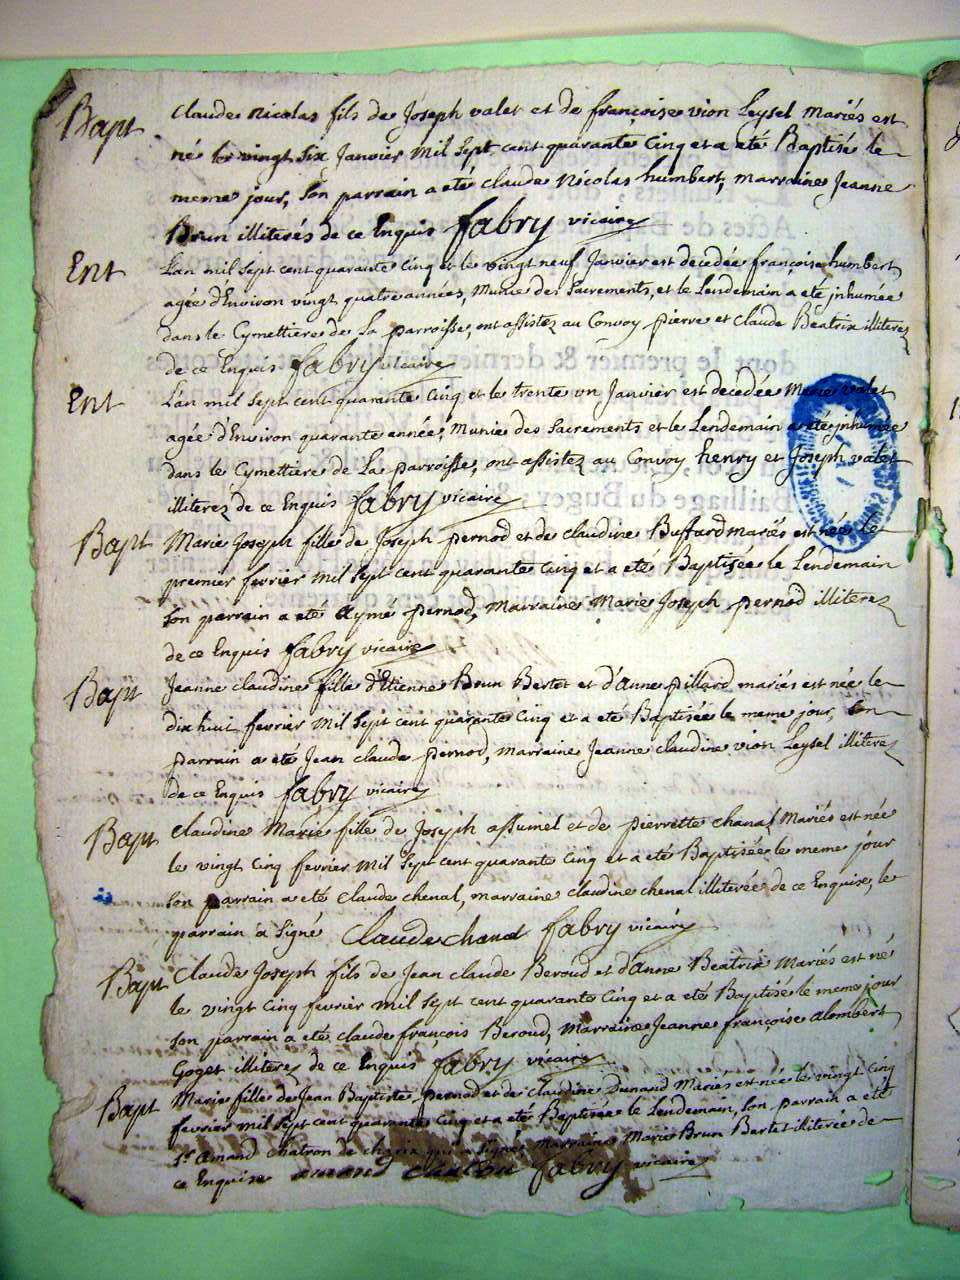 Bapt Claude Nicolas fils de Joseph valet et de françoise vion Leysel Mariés est
né le vingt six Janvier Mil sept cent quarante Cinq et a eté Baptisé le
meme jour, son parrain a eté Claude Nicolas humbert, marraine Jeanne
Brun illiterés de ce Enquis fabry vicaire
Ent L'an mil sept cent quarante Cinq et le vingt neuf Janvier est decedée françoise humbert
agée d'Environ vingt quatre années, Munie des Sacrements, et le Lendemain a eté jnhumée
dans le Cymettiere de La parroisse, ont assistez au Convoy pierre et Claude Beatrix illiterez
de ce Enquis fabry vicaire
Ent L'an mil sept cent quarante Cinq et le trente un Janvier est decedée Marie valet
agée d'Environ quarante année, Munies des Sacrements et le Lendemain a eté jnhumée
dans le Cymettiere de La parroisse, ont assistez au Convoy henry et Joseph valet
illiterez de ce Enquis fabry vicaire
Bapt Marie Joseph fille de Joseph pernod et de Claudine Buffard mariés est née le
premier fevrier Mil sept cent quarante Cinq et a eté Baptisée le Lendemain
son parrain a eté aymé pernod, Marraine Marie Joseph pernod illiterez
de ce Enquis fabry vicaire
Bapt Jeanne Claudine fille d'Etienne Brun Bertet et d'anne pillard mariés est née le
dix huit fevrier Mil sept cent quarante Cinq et a eté Baptisée le meme jour, son
parrain a eté Jean Claude pernod, Marraine Jeanne Claudine vion Leysel illiterez
de ce Enquis fabry vicaire
Bapt Claudine Marie fille de Joseph assumel et de pierrette chanal Mariés est née
le vingt Cinq fevrier Mil sept cent quarante Cinq et a eté Baptisée le meme jour
son parrain a eté Claude chenal, marraine Claudine chenal illiterée de ce Enquise, le
parrain a signé Claude chanal fabry vicaire
Bapt Claude Joseph fils de Jean Claude Beroud et d'anne Beatrix Mariés est né
le vingt Cinq fevrier Mil sept cent quarante Cinq et a eté Baptisé le meme jour
son parrain a eté Claude françois Beroud, Marraine Jeanne françoise alombert
Goget illiterez de ce Enquis fabry vicaire
Bapt Marie fille de Jean Baptiste pernod et de Claudine Dunand Mariés est née le vingt Cinq
fevrier Mil sept cent quarante Cinq et a eté Baptisée le Lendemain, son parrain a eté
sr amand chatron de qui a signé Marraine Marie Brun Bertet illiterée de
ce Enquise fabry vicaire